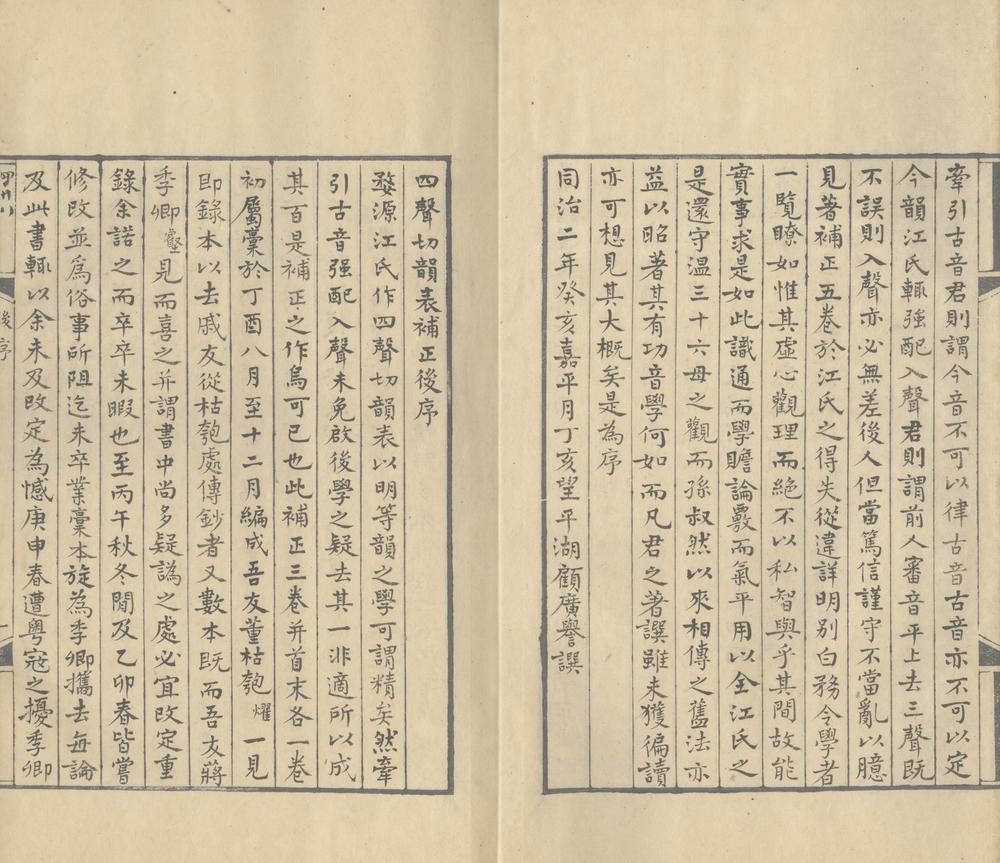 牽引古音君則謂今音不可以律古音古音亦不可以定
今韻江氏輒強配入聲君則謂前人審音平上去三聲既
不誤則入聲亦必無差後人但當篤信謹守不當亂以臆
見著補正五卷於江氏之得失從違詳明別白務令學者
一覽瞭如惟其虛心觀理而絶不以私智與乎其間故能
實事求是如此識通而學贍論覈而氣平用以全江氏之
是還守温三十六母之觀而孫叔然以來相傳之舊法亦
益以昭著其有功音學何如而凡君之著譔雖未獲徧讀
亦可想見其大概矣是為序
同治二年癸亥嘉平月丁亥望平湖顧廣譽譔
四聲切韻表補正後序
婺源江氏作四聲切韻表以明等韻之學可謂精矣然牽
引古音强配入聲未免啟後學之疑去其一非適所以成
其百是補正之作烏可已也此補正三卷并首末各一卷
初屬稾於丁酉八月至十二月編成吾友董枯匏燿一見
即錄本以去戚友從枯匏處傳鈔者又數本既而吾友蔣
季卿壑見而喜之并謂書中尚多疑譌之處必宜改定重
錄余諾之而卒卒未暇也至丙午秋冬閒及乙卯春皆嘗
修改並爲俗事所阻迄未卒業稾本旋為季卿攜去每論
及此書輒以余未及改定為憾庚申春遭粤寇之擾季卿
後序